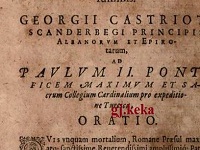 GEORGII CASTRIOT
SCANDERBEGI PRINCIPI
ALBANORVM ET EPIRO-
tarum,
AD
PAVLVM II. PONT
FICEM MAXIMVM ET SA-
crum Collegium Cardinalium pro expeditio
ne Turcica
gj.keka
ORATIO.
VIs vnquam mortalium, Romane Præsul maxi